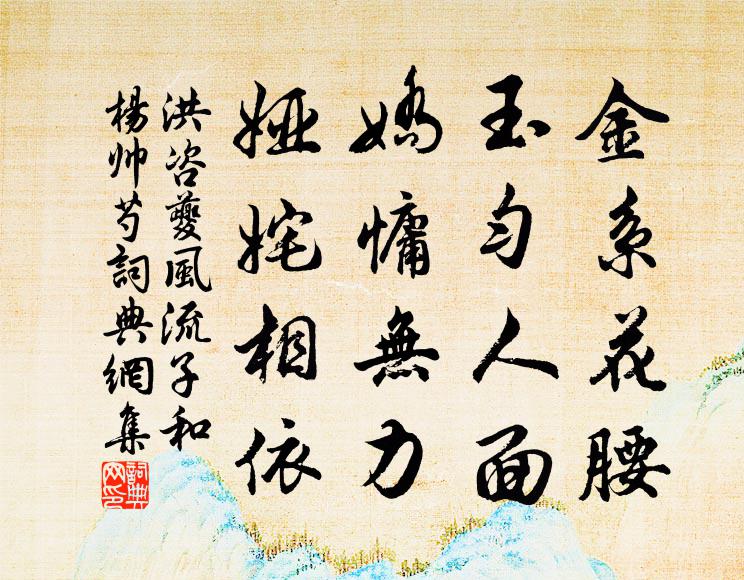 金系花腰
玉勻人面
嬌慵無力
婭姹相依
洪咨夔風流子和
楊帅芍詞典網集
詞典網印